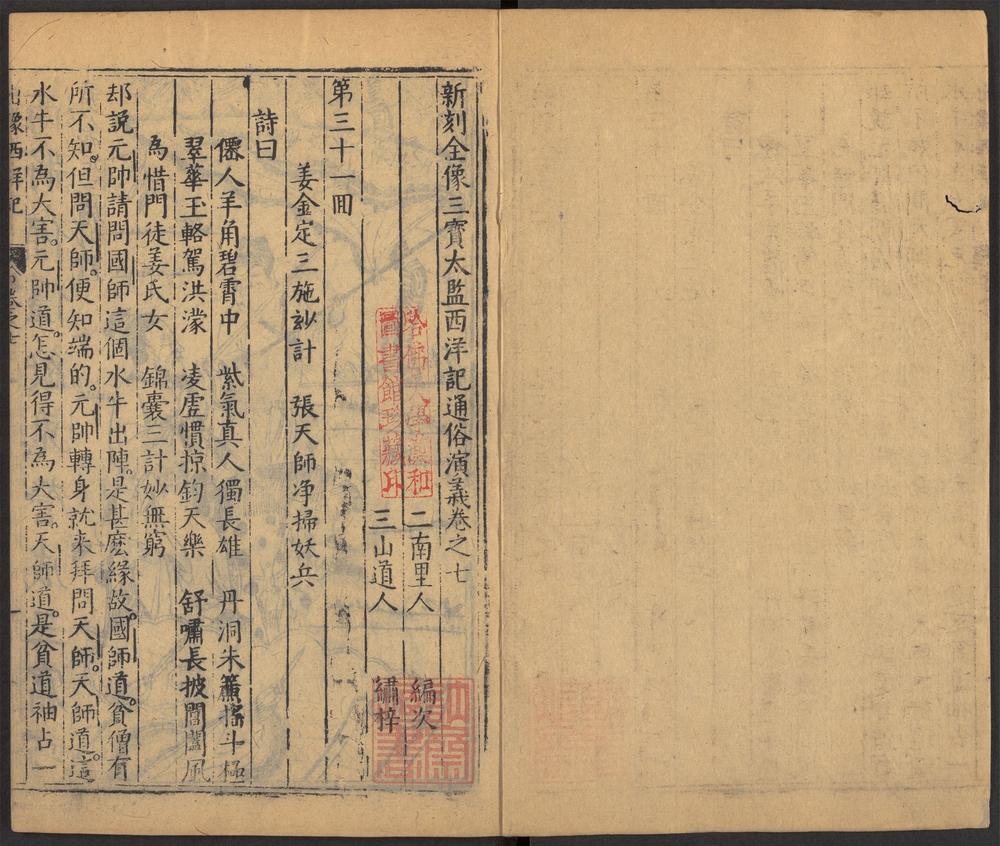 新刻全像三寶太監西洋記通俗演義卷之七
二南里人 編次
三山道人 繡梓
第三十一囬
姜金定三施玅計 張天師净掃妖兵
詩曰
僊人羊角碧霄中 紫氣真人獨長雄 丹洞朱簾搖斗極
翠華玉輅駕洪濛 凌虗慣掠鈞天樂 舒嘯長披閶闔風
為惜門徒姜氏女 錦囊三計妙無窮
却說元帥請問國師這個水牛出陣。是甚麽緣故。國師道。貧僧有
所不知。但問天師。便知端的。元帥轉身就来拜問天師。天師道。這
水牛不為大害。元帥道。怎見得不為大害。天師道。是貧道袖占一
出像西洋記 卷之七 一
圖書館珍藏印